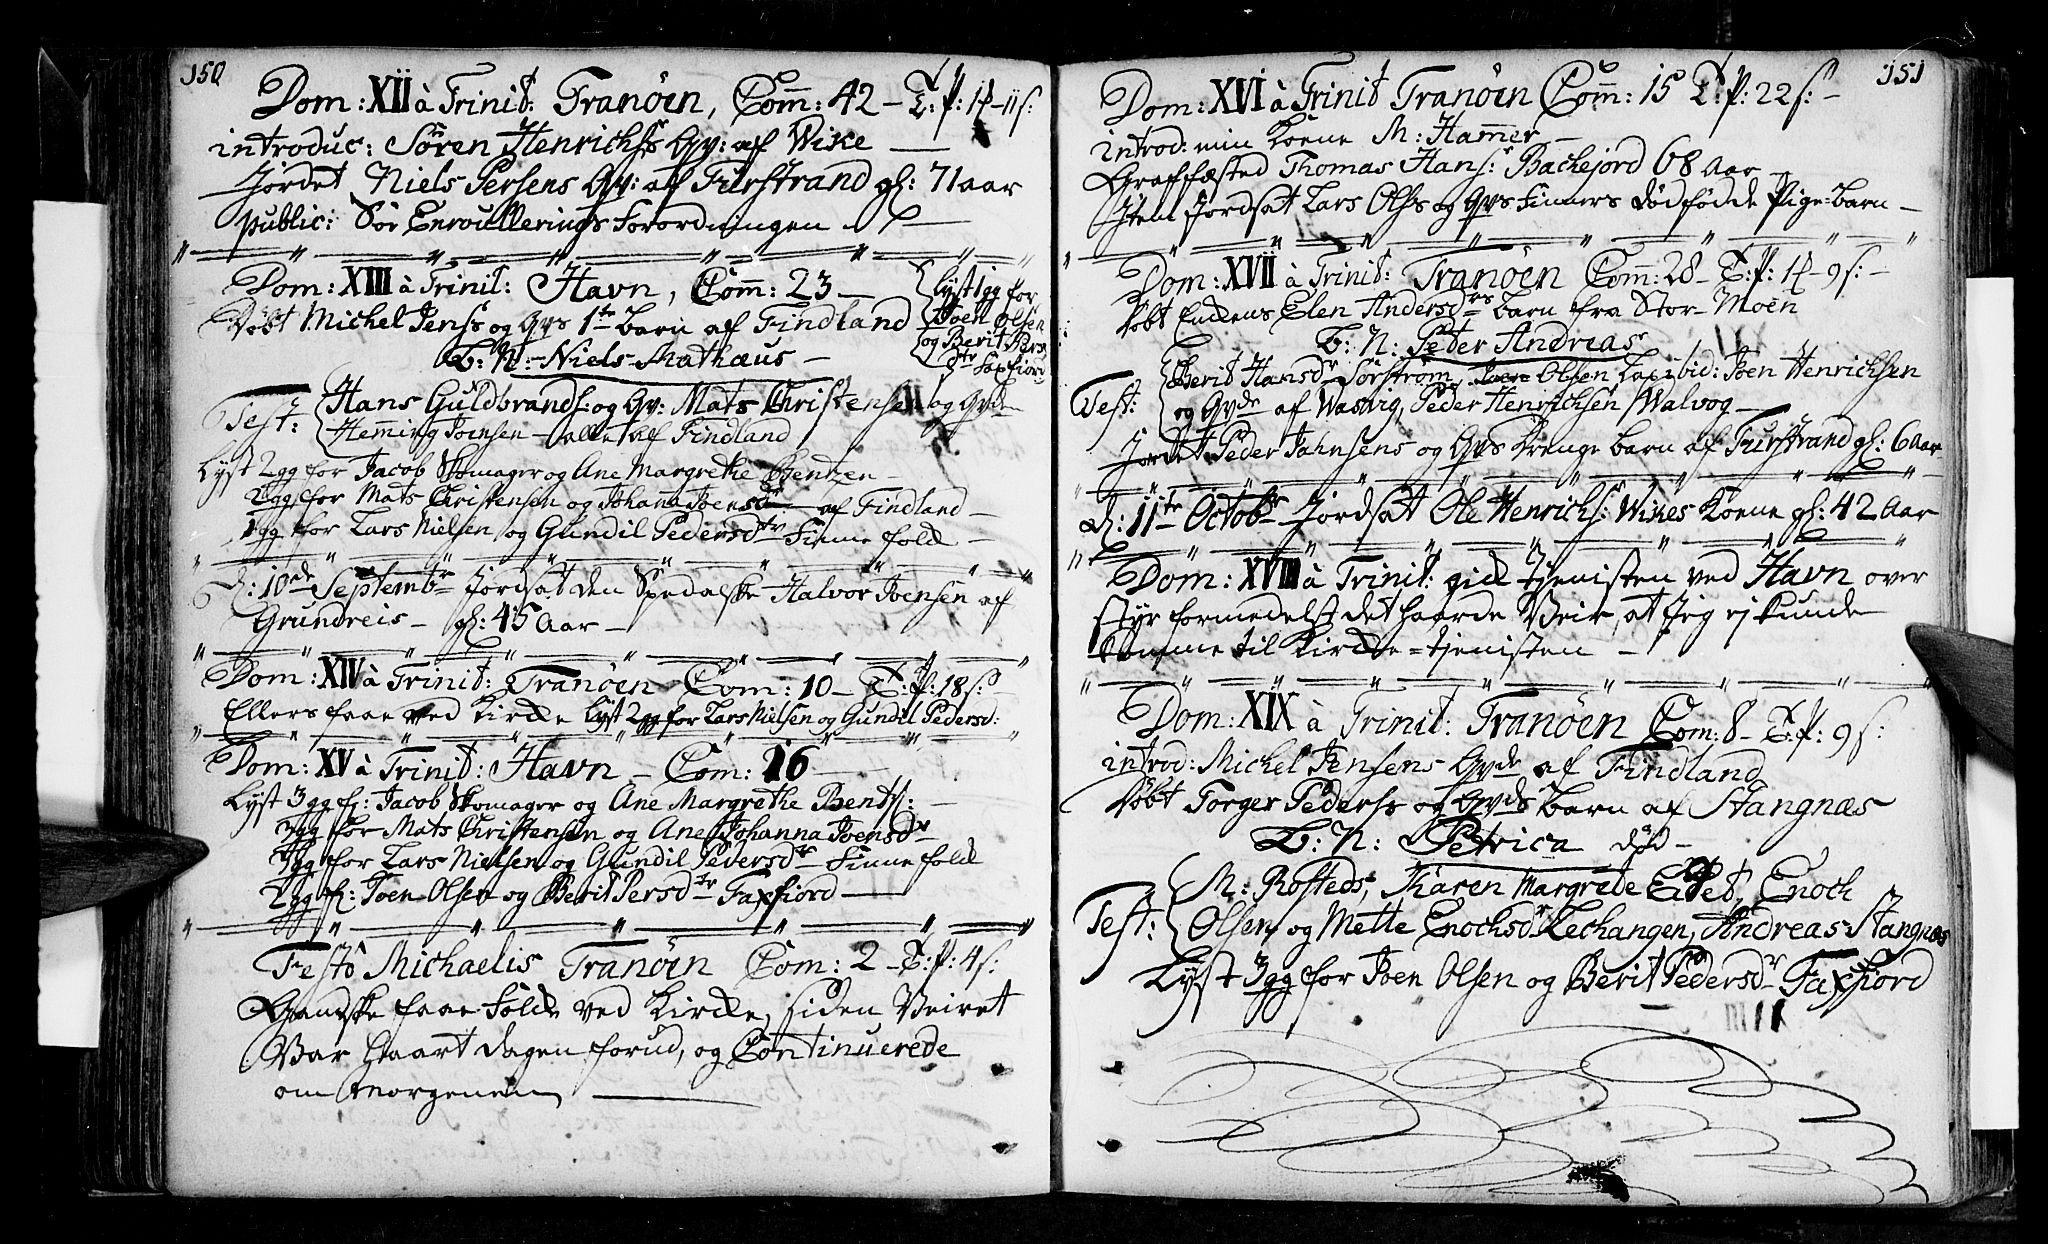 150
Dom: XII à Trinit: Tranöen, Com̄: 42 – T: P: 1 – 11 s:
introduc: Sören Henrichs Qv: af Wike —
Jordet Niels Persens Qv: af Furstrand gl: 71 aar
public: Söe Enroullerings Forordningen
Dom: XIII à Trinit: Havn, Com̄: 23 –
Döbt Michel Jens's og Qvs 1te barn af Findland
B: N: Niels Mathæus –
Lyst 1 gg for
Joen Olsen
og Berit Pers
Dtr Faxfiord
Test: Hans Guldbrands: og Qv: Mats Christensen og Qvde
Hem̄ing Joensen – alle af Findland
Lyst 2 gg for Jacob Skomager og Ane Margrethe Bentzen –
2 gg for Mats Christensen og Johana Joensdr af Findland –
1 gg for Lars Nielsen og Gundil Pedersdtr Finne folk –
D: 10de Septembr Jordsat den Spedalske Halvor Joensen af
Grundreis – gl: 45 Aar –
Dom: XIV à Trinit: Tranöen Com: 10 – T: P: 18 s:
Ellers faae ved Kirke Lyst 2 gg for Lars Nielsen og Gundil Pedersd:
Dom: XV à Trinit: Havn – Com: 26
Lyst 3 gg f: Jacob Skomager og Ane Margrethe Bents: –
3 gg for Mats Christensen og Ane Johanna Joensdr
3 gg for Lars Nielsen og Gundil Pedersdr Finne folk
2 gg f: Joen Olsen og Berit Persdtr Faxfiord —
Festo Michaelis Tranöen Com: 2 – T: P: 4 s:
Ganske faae Folk ved Kirke, siden Veiret
Var haart dagen forud, og Continuerede
om Morgenen —
151
Dom: XVI à Trinit Tranöen Com̄: 15 T: P: 22 s: –
introd: min Kone M: Ham̄er –
Graffæsted Thomas Hans: Bachejord 68 Aar –
Item Jordsat Lars Ols's og Qvs Finners dödfödde Pige-barn –
Dom: XVII à Trinit: Tranöen Com̄: 28 – T: P: 1 – 9 s: –
Döbt Enkens Elen Andersdrs barn fra Stor-Moen
B: N: Peder Andreas
Test: Berit Hansdr Sörström, Olsen Joen Henrichsen
og Qvde af Wasvig, Peder Henrichsen Walvog –
Jordet Peder Jahnsens og Qvs Drenge barn af Furstrand gl: 6 Aar
D: 11te Octobr Jordsat Ole Henrichs: Wikes Kone gl: 42 Aar
Dom: XVIII à Trinit: gik tjenisten ved Havn over
styr formedelst det haarde Veir, at Jeg ej kunde
komme til Kirke-tjenisten –
Dom: XIX à Trinit: Tranöen Com: 8 – T: P: 9 s:
introd: Michel Jensens Qvde af Findland
Döbt Torger Peders's og Qvds barn af Stangnæs
B: N: Petrica död –
Test: M: Rosteds, Karen Margrete Eidet, Enoch
Olsen og Mette Enochsdr Lechangen, Andreas Stangnæs
Lyst 3 gg for Joen Olsen og Berit Pedersdr Faxfiord